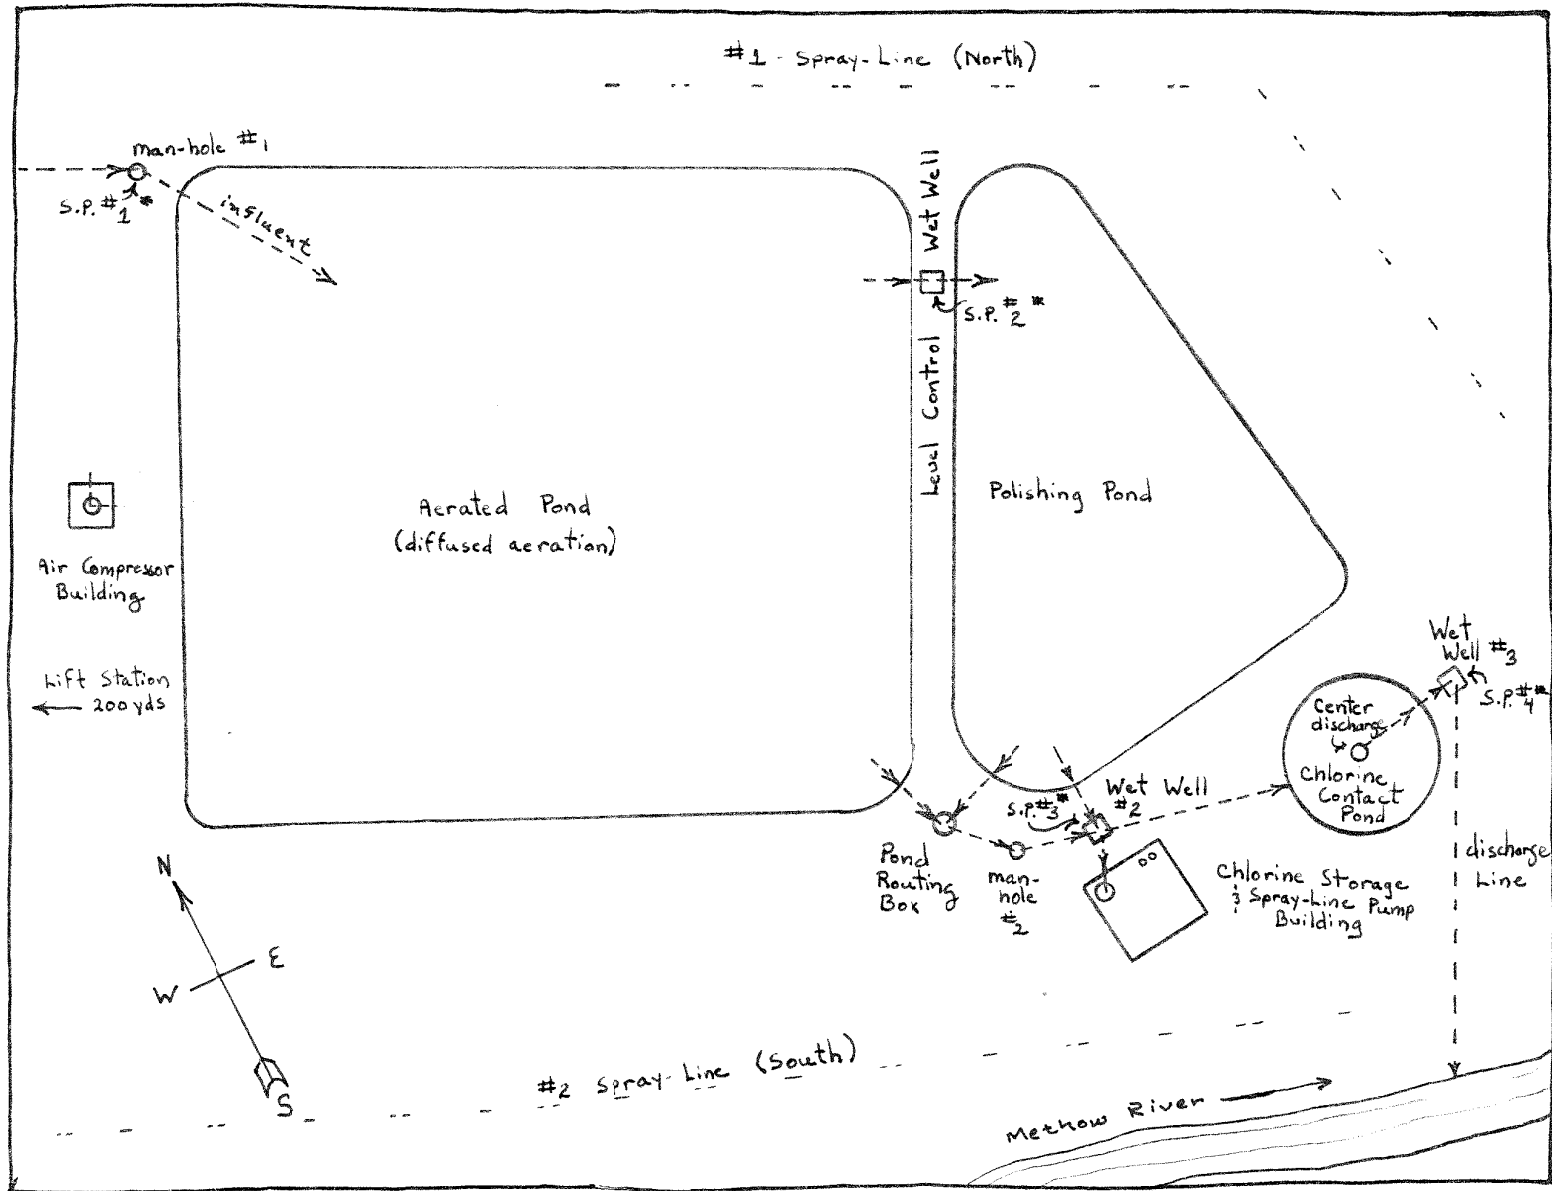 #1 - Spray-Line (North)
man-hole #1
S.P. #1*
influent
Level Control Wet Well
S.P. #2*
Aerated Pond
(diffused aeration)
Polishing Pond
Air Compressor
Building
Lift Station
200 yds
Wet
Well #3
S.P. #4*
Center
discharge
Chlorine
Contact
Pond
Wet Well
#2
S.P. #3*
Pond
Routing
Box
man-
hole
#2
Chlorine Storage
& Spray-Line Pump
Building
discharge
Line
N
E
W
S
#2 Spray-Line (South)
Methow River